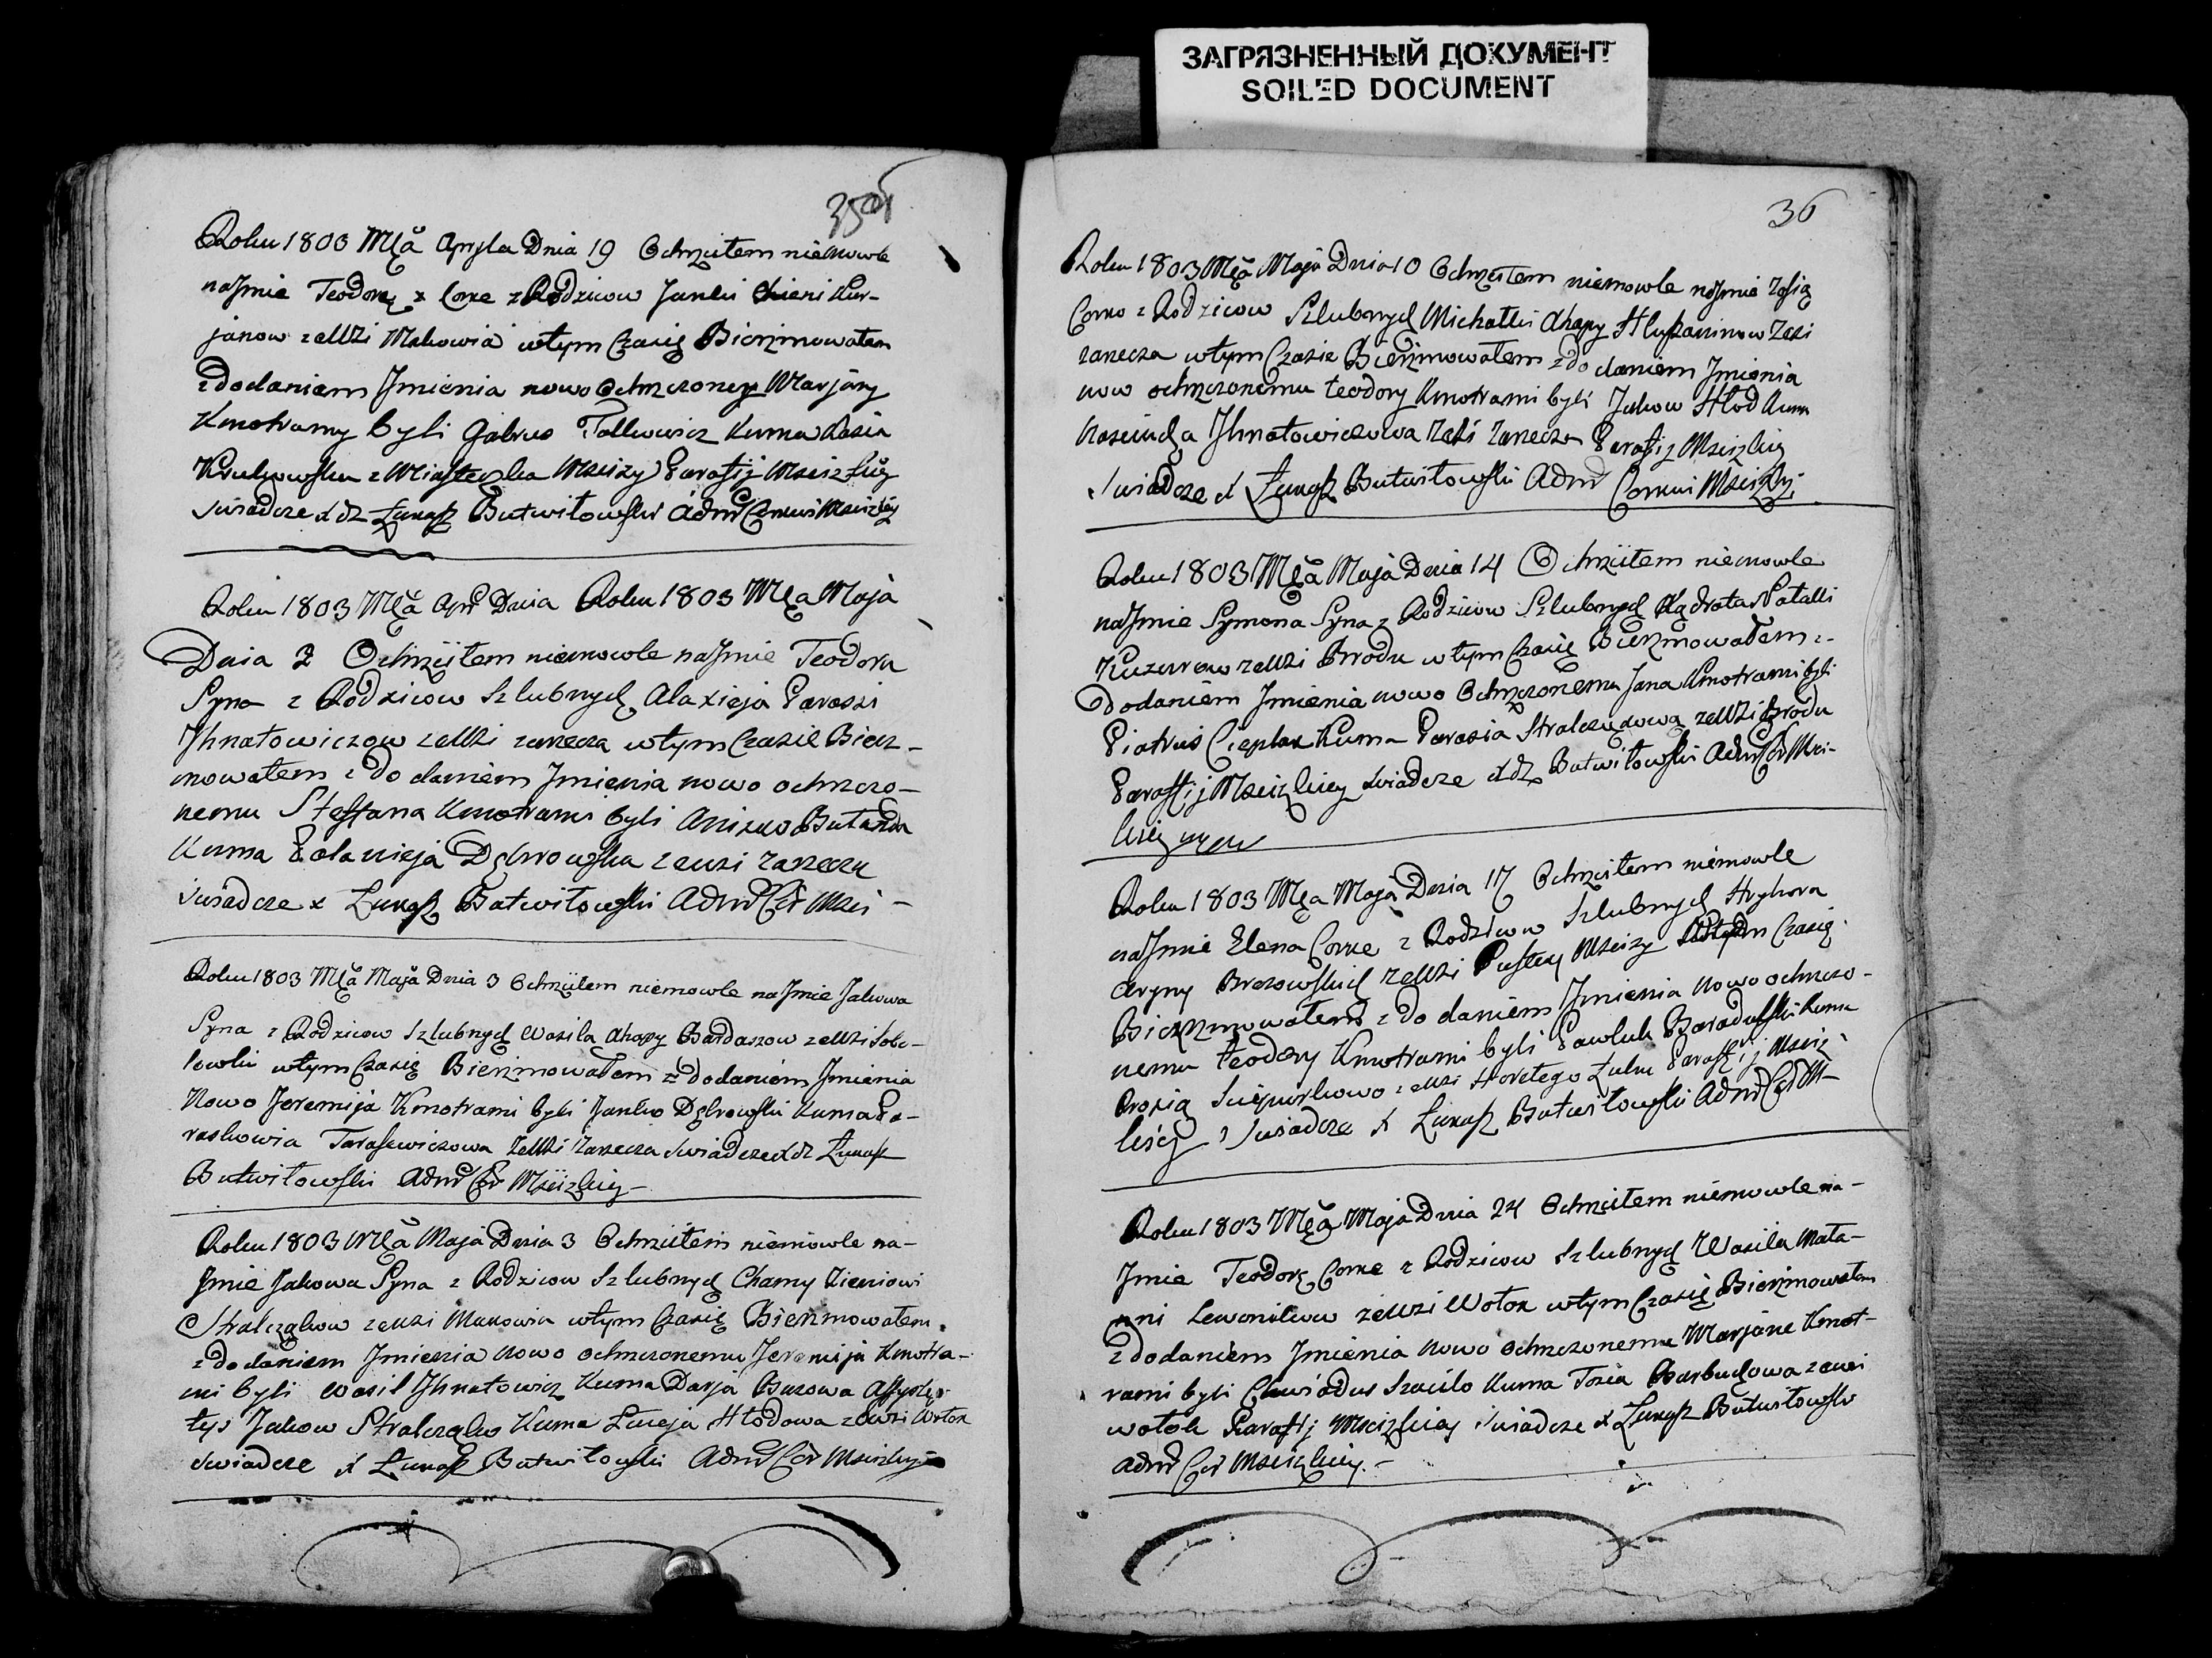 ЗАГРЯЗНЕННЫЙ ДОКУМЕНТ
SOILED DOCUMENT
35
Roku 1803 Mca Apryla Dnia 19 Ochrzciłem niemowle
na Jmie Teodorę x Corke z Rodzicow Janki Kur-
janow z Wsi Makowia w tym Czasię Bierzmowałem
z Dodaniem Jmienia nowo Ochrzconey Marjany
Kmotramy byli Gabrus Kuma Kasia
Krukowska z Miasteczka Mscizy Parafij Mscizkiey
Swiadcze X dz Łukasz Butwiłowski Admr Cerkwi Mscizkiey
Roku 1803 Mca Apr Dnia Roku 1803 Mca Maja
Dnia 2 Ochrzciłem niemowle na Jmie Teodora
Syna z Rodzicow Szlubnych Alaxieja Paraski
Jhnatowiczow z Wsi zarecza w tym Czasie Bierz-
mowałem z Dodaniem Jmienia nowo ochrzczo-
nemu Steffana Kmotrami byli
Kuma Połanieja Dąbrowska z wsi Zarecza
Swiadcze x Łukasz Butwiłowski Admr Cer Msci-
Roku 1803 Mca Maja Dnia 3 Ochrzciłem niemowle na Jmie Jakowa
Syna z Rodzicow Szlubnych Wasila Ahapy Bardaszow z Wsi Sobo-
lewki w tym Czasię Bierzmowałem z Dodaniem Jmienia
Nowo Jeremija Kmotrami byli Janko Dąbrowski Kuma Pa-
raskowia Tarasewiczowa z Wsi Zarecza Swiadcze X dz Łukasz
Butwiłowski Admr Cer Mscizkiey
Roku 1803 Mca Maja Dnia 3 Ochrzciłem niemowle na-
Jmie Jakowa Syna z Rodzicow Szlubnych Chamy Zieniowi
Stralcząkow z wsi Makowia w tym Czasię Bierzmowałem
z Dodaniem Jmienia nowo ochrzconemu Jeremija Kmotra-
mi byli Wasil Jhnatowicz Kuma Darja Assystę-
Jakow Stralcząk Kuma Łucja Hłodowa z Wsi Wołok
Swiadcze X Łukasz Butwiłowski Admr Cer Mscizkiey
36
Roku 1803 Mca Maja Dnia 10 Ochrzciłem niemowle na Jmie Zofią
Corko z Rodzicow Szlubnych Michałki Ahapy z Wsi
zarecza w tym Czasie Bierzmowałem z Dodaniem Jmienia
now ochrzconemu teodory Kmotrami byli Jakow Hłod Kuma
Jhnatowiczowa z Wsi Zarecza Parafij Mscizkiey
Swiadcze X Łukasz Butwiłowski Admr Cerkwi Mscizkiey
Roku 1803 Mca Maja Dnia 14 Ochrzciłem niemowle
na Jmie Symona Syna z Rodzicow Szlubnych Kądrata Natalli
z Wsi Brodu w tym Czasię Bierzmowałem z-
Dodaniem Jmienia nowo Ochrzconemu Jana Kmotrami byli
Piatrus Cieplak Kuma Parasia Stralczukowa z Wsi Brodu
Parafij Mscizkiey Swiadcze X dz Butwiłowski Admr Cer Msci-
Roku 1803 Mca Maja Dnia 17 Ochrzciłem niemowle
na Jmie Elena Corke z Rodzicow Szlubnych Hryhora
Aryny Brezowskich z Wsi Pustey Mscizy w tym Czasię
Bierzmowałem z Dodaniem Jmienia nowo ochrzczo-
nemu teodory Kmotrami byli Pawluk Kuma
z wsi Horełego Ługu Parafij Msciz-
Swiadcze X Łukasz Butwiłowski Admr Cer M-
Roku 1803 Mca Maja Dnia 24 Ochrzciłem niemowle na-
Jmie Teodorę Corke z Rodzicow Szlubnych Wasila Mała-
nni z Wsi Wołok w tym Czasię Bierzmowałem
z Dodaniem Jmienia nowo ochrzczonemu Marjane Kmot-
rami byli Kuma z wsi
wołok Parafij Mscizkiey Swiadcze X Łukasz Butwiłowski
Admr Cer Mscizkiey.-